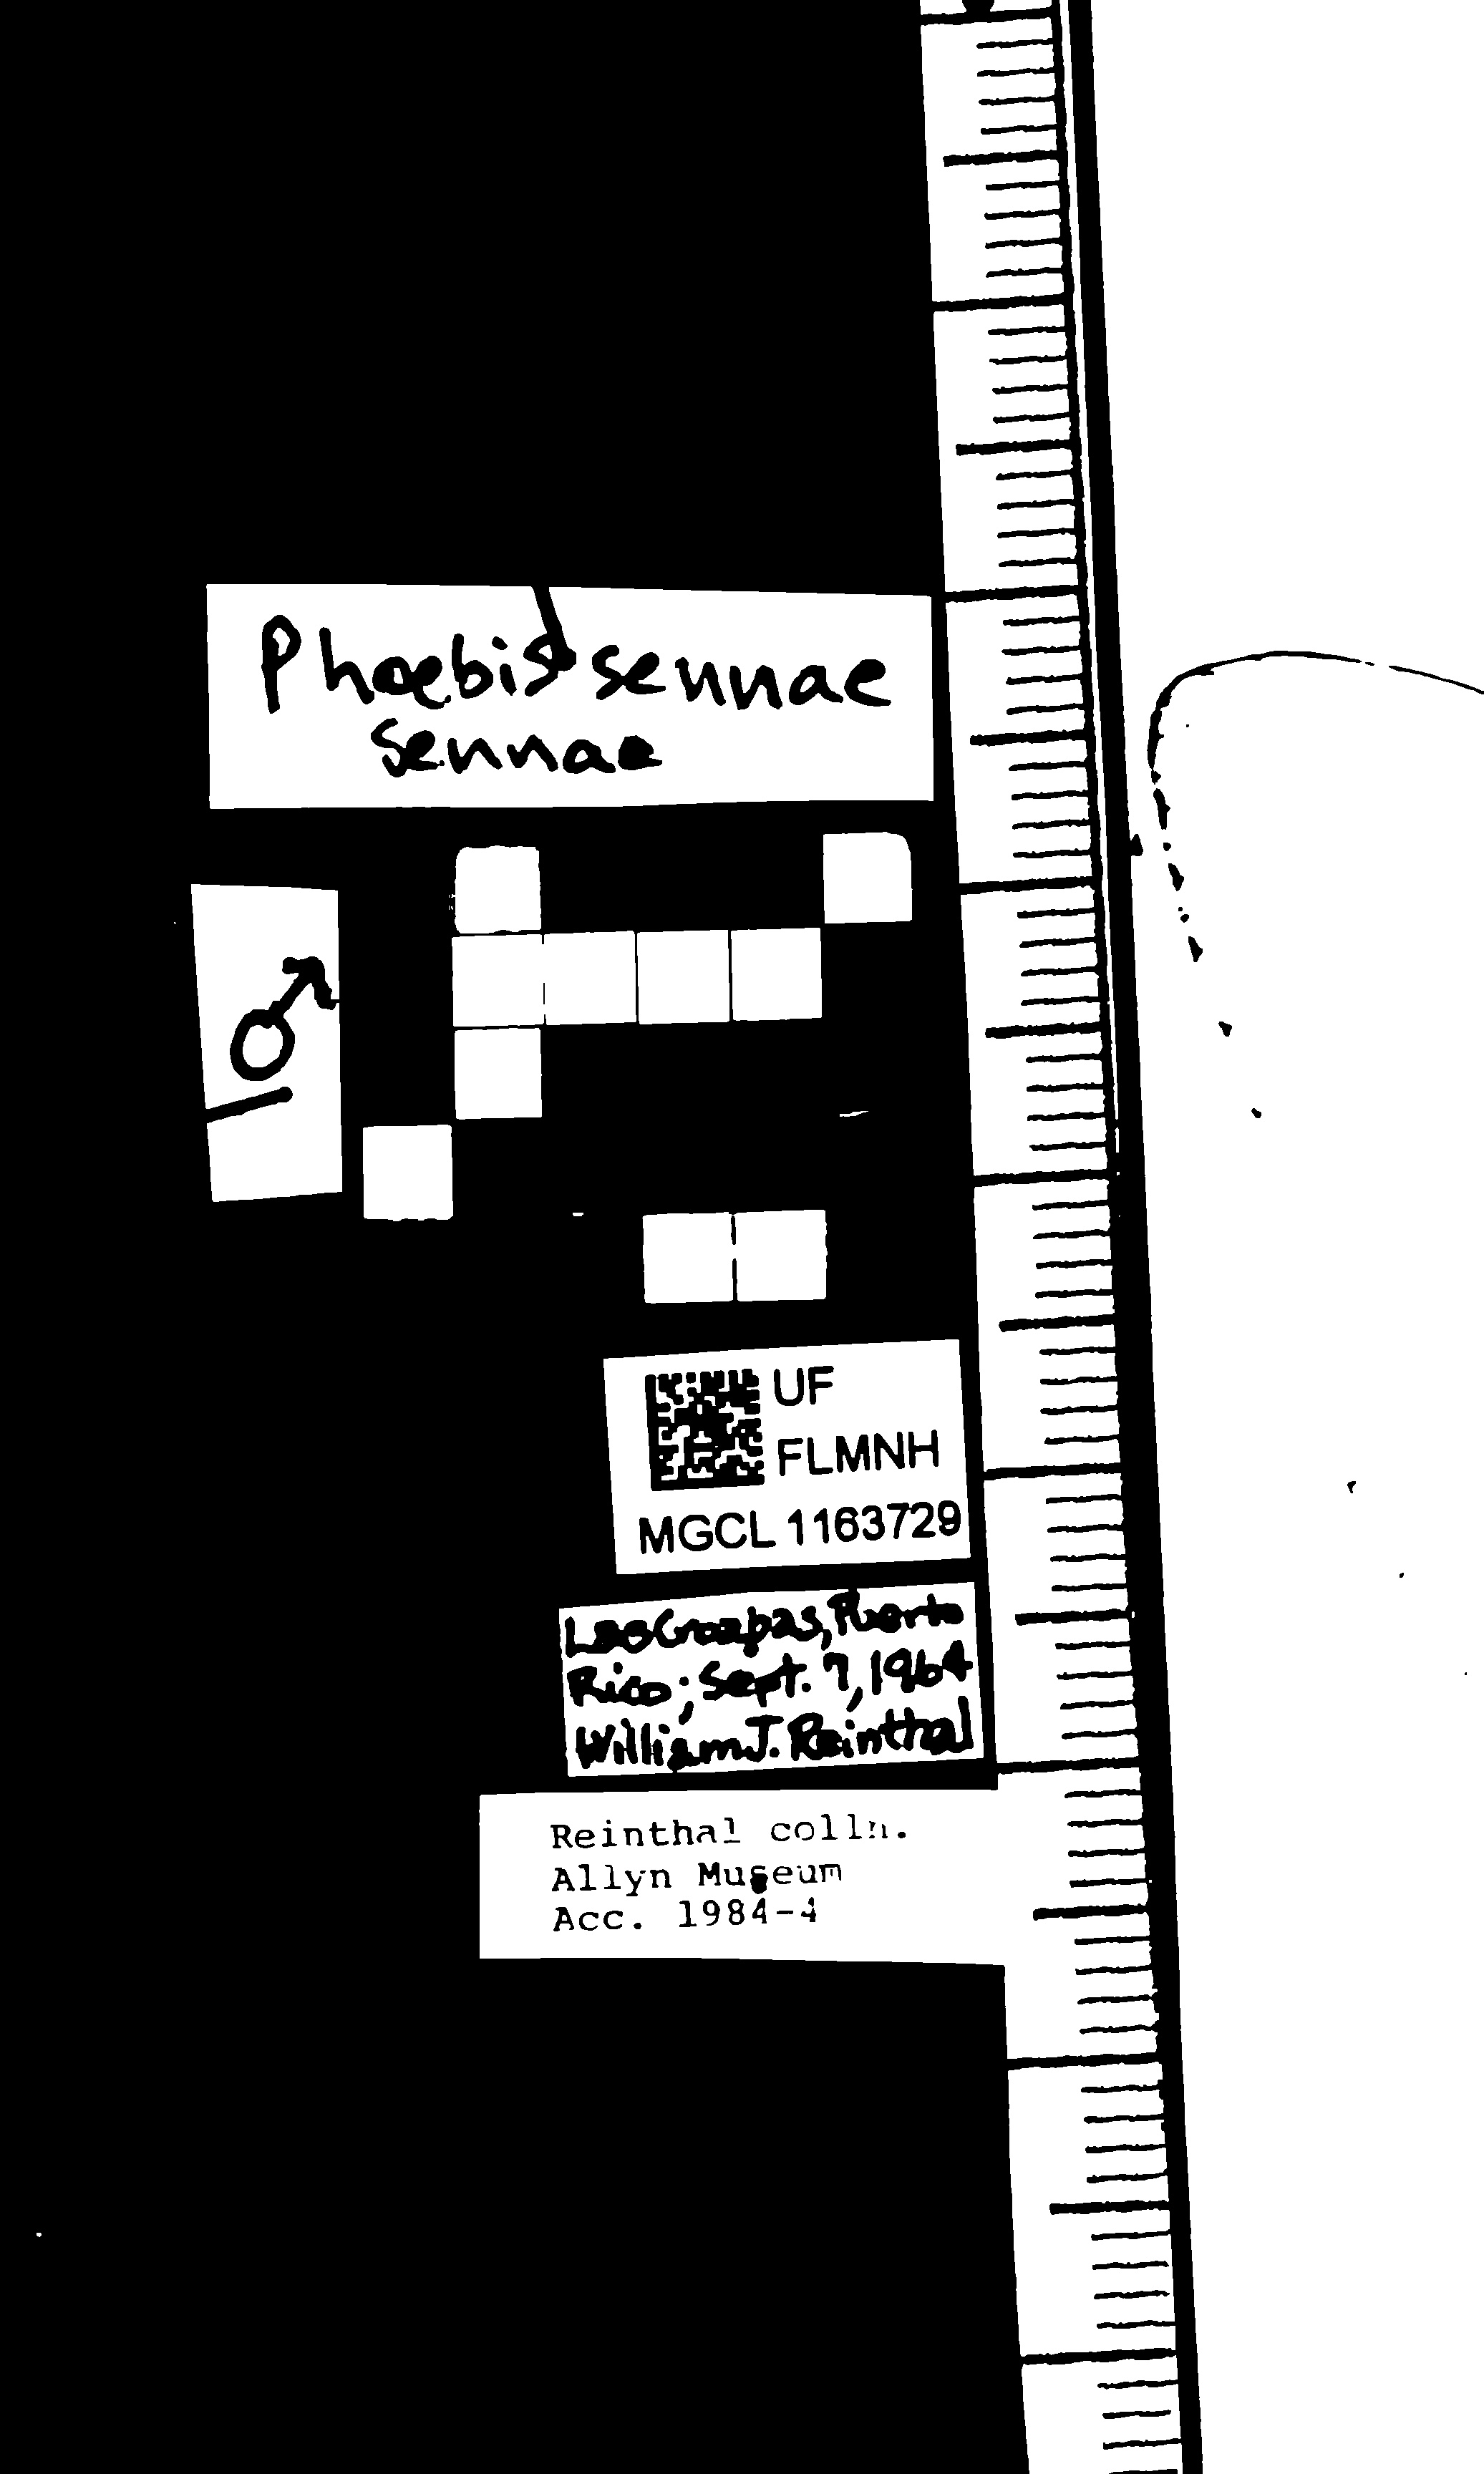 Phoebis sennae
sennae
♂
UF
FLMNH
MGCL 1163729
Las Croabas, Puerto
Rico; Sept. 7, 1964
William J. Reinthal
Reinthal colln.
Allyn Museum
Acc. 1984-4